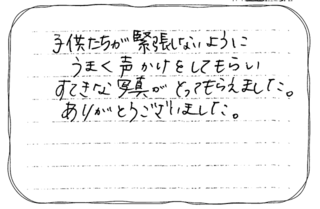 子供たちが緊張しないように
うまく声かけをしてもらい
すてきな写真がとってもらえました。
ありがとうございました。